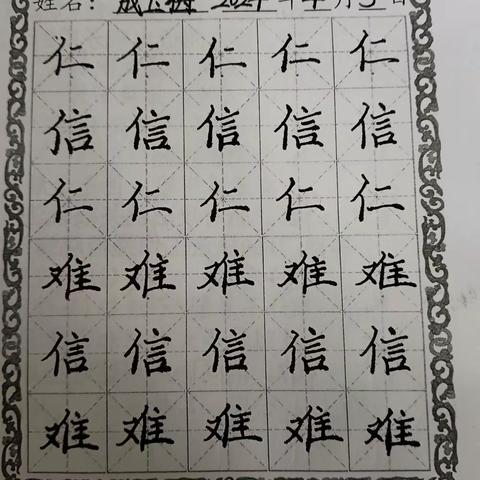 姓名： 2024年4月3日
仁仁仁仁仁
信信信信信
仁仁仁仁仁
难难难难难
信信信信信
难难难难难